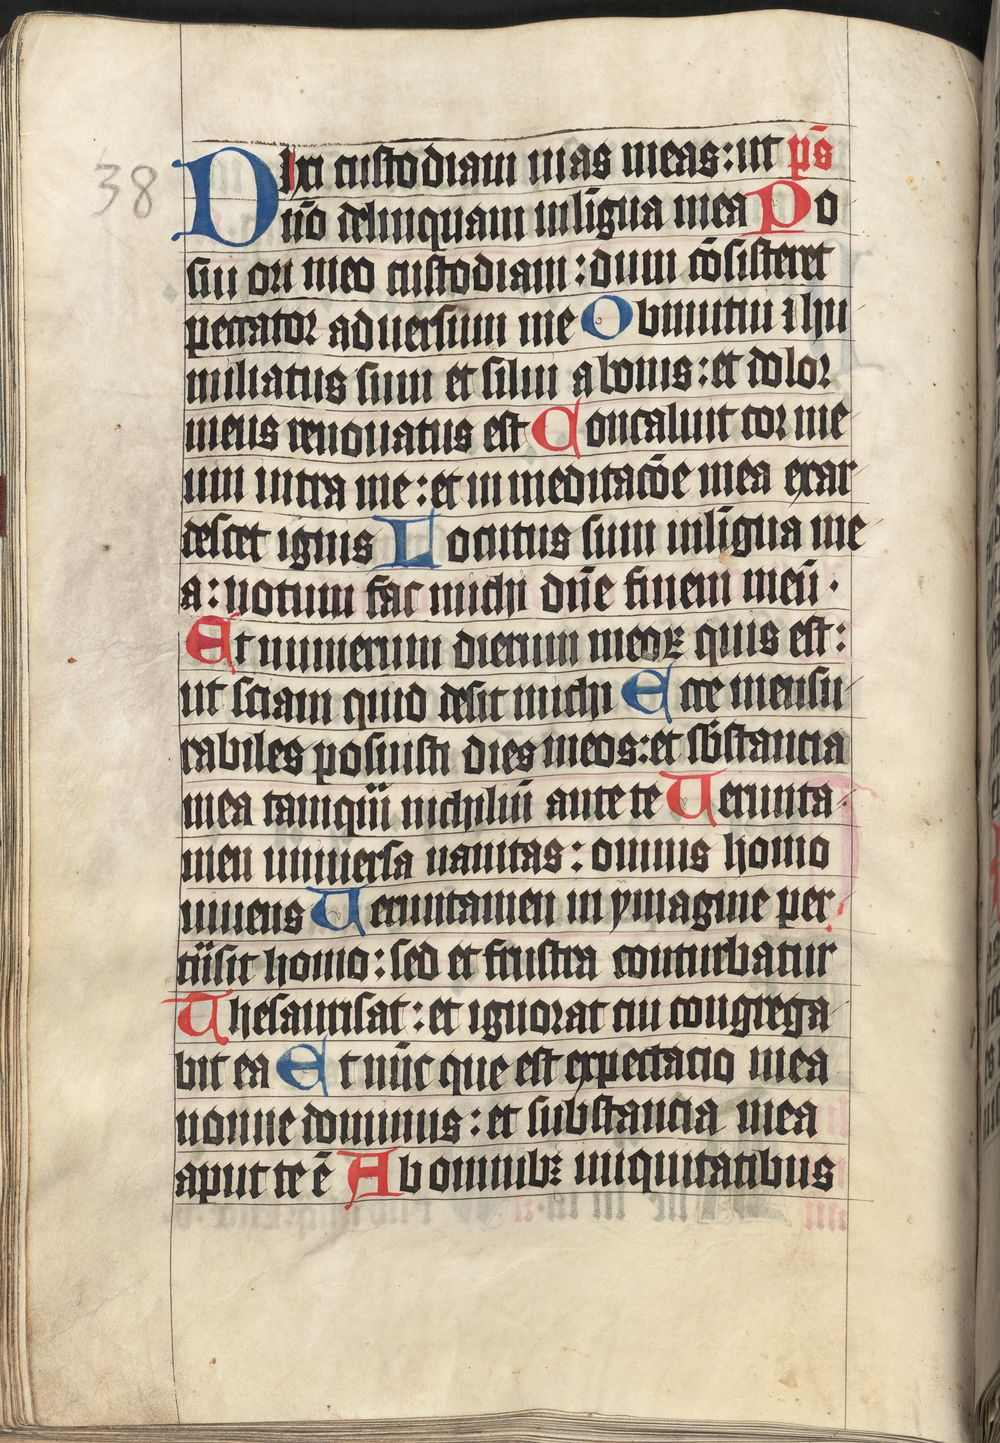 38
Dixi custodiam uias meas: ut ps̄
nō delinquam in līgua mea Po
sui ori meo custodiam: dum cōsisteret
peccator aduersum me Obmutui ⁊ hu
miliatus sum et silui a bonis: et dolor
meus renouatus est Concaluit cor me
um intra me: et in meditacōe mea exar
descet ignis Locutus sum in līgua me
a: notum fac michi dn̄e finem meū.
Et numerum dierum meoꝝ quis est:
ut sciam quid desit michi Ecce mensu
rabiles posuisti dies meos: et sb̄stancia
mea tamqͣm nichilū ante te Uerunta
men uniuersa uanitas: omnis homo
uiuens Ueruntamen in ymagine per
tͣnsit homo: sed et frustra conturbatur
Thesaurisat: et ignorat cui congrega
bit ea Et nūc que est expectacio mea
nonne dominus: et substancia mea
aput te ē Ab omnibꝫ iniquitatibus